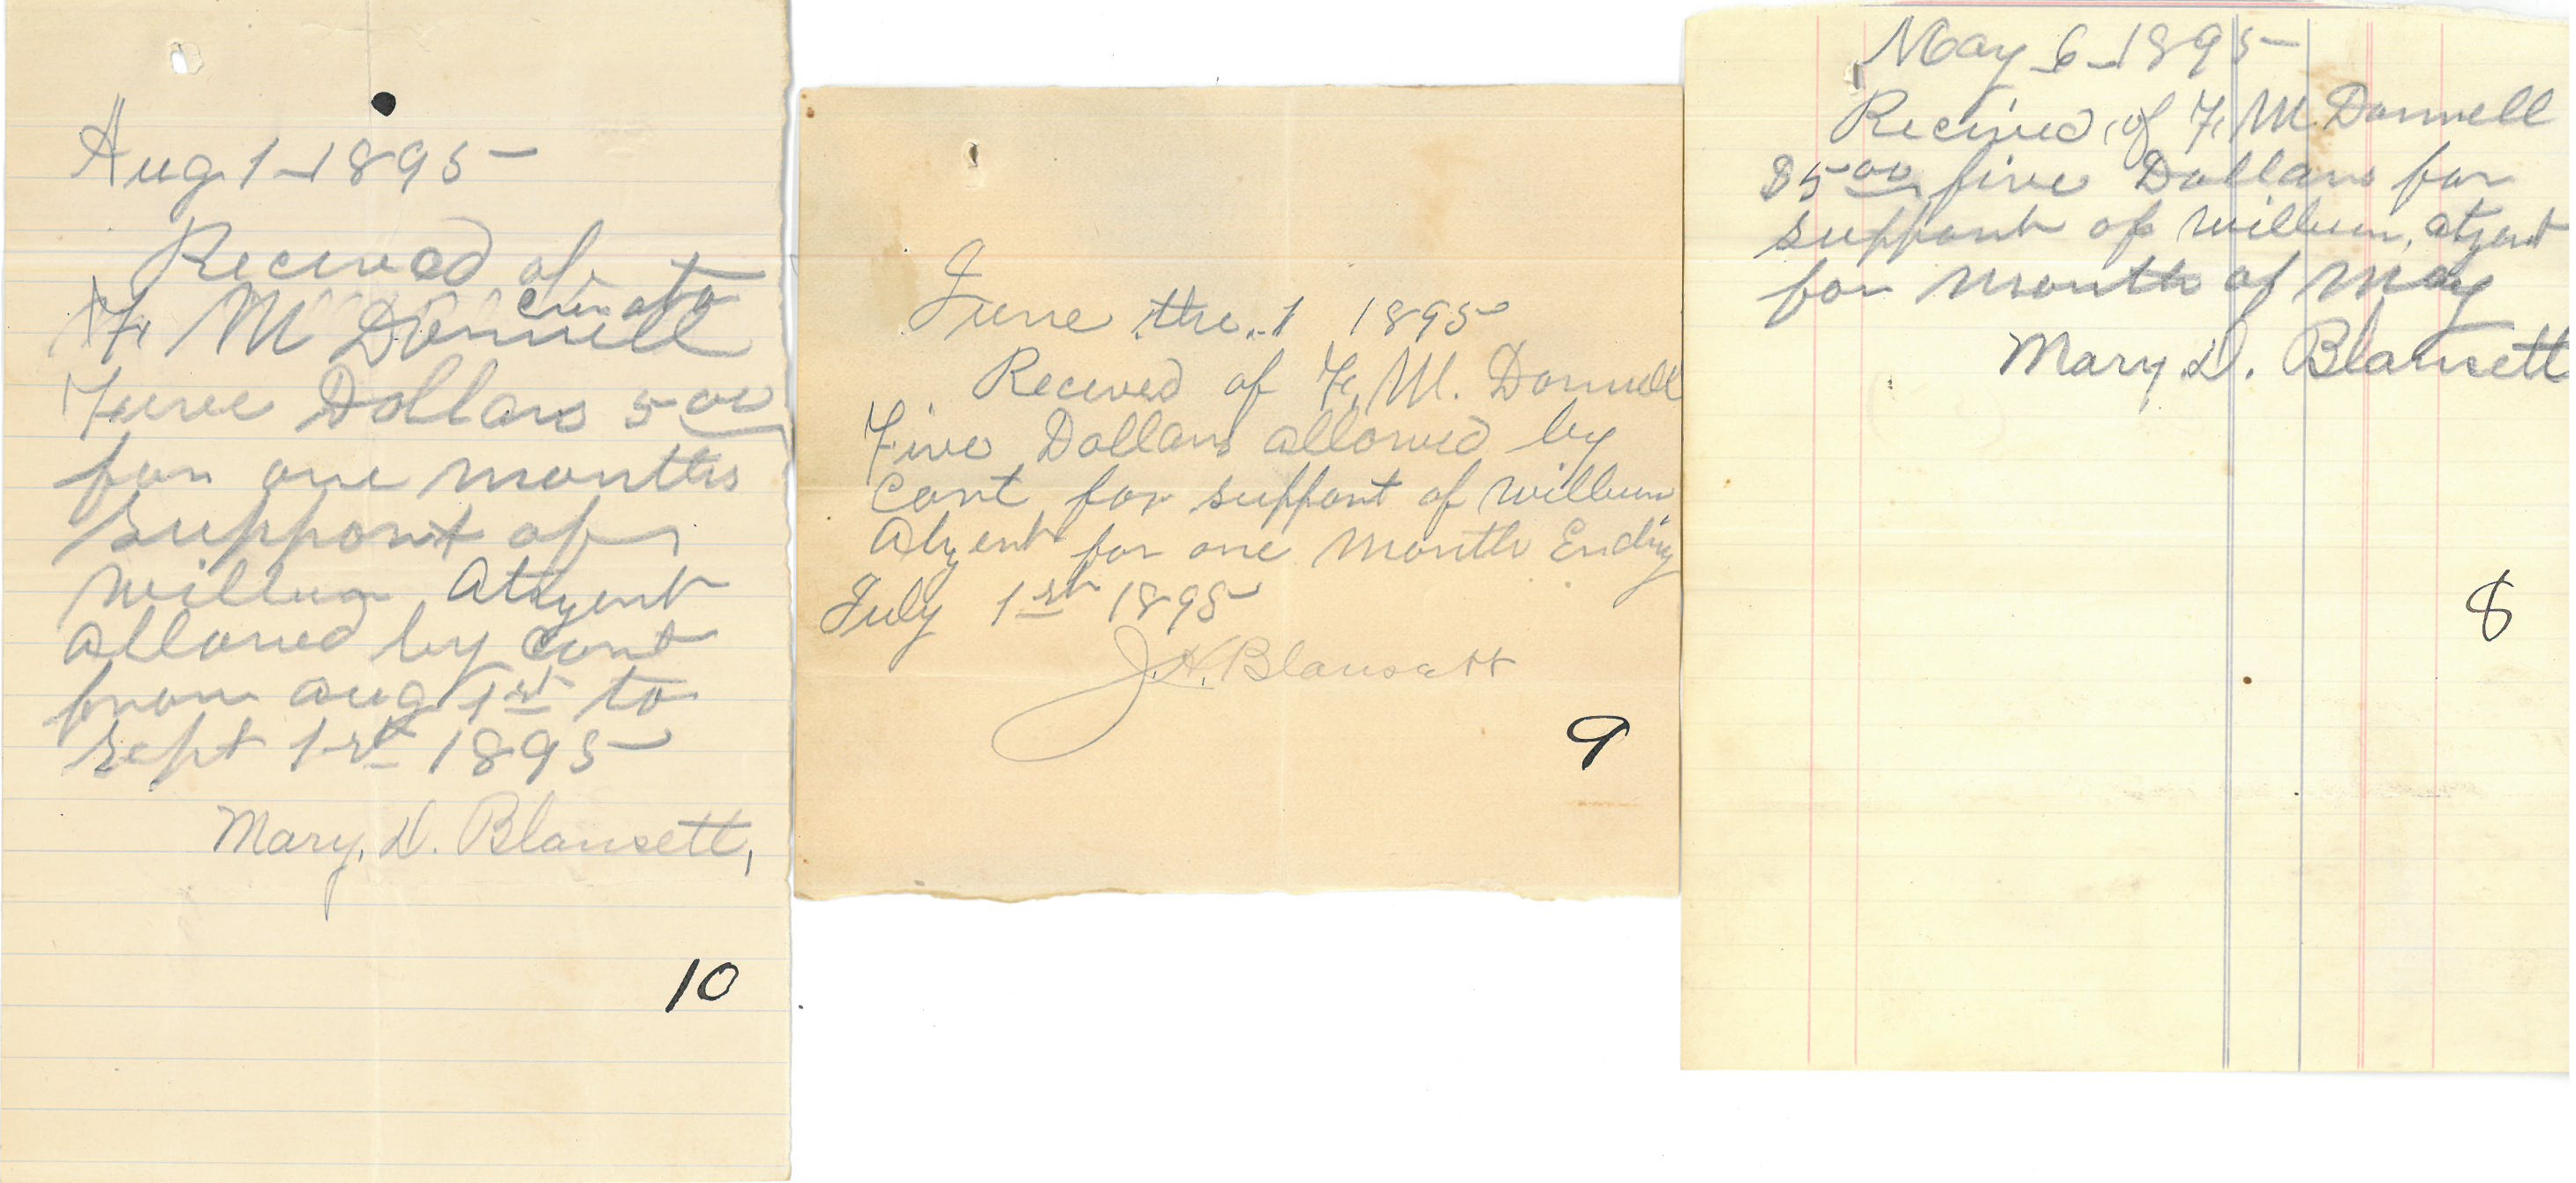 Aug 1 - 1895
Recieved of
F. M Donnell
Fieve Dollars 5 00
for one months
support of
Willum Atzent
allowed by Cort
from aug 1st to
sept 1st 1895
Mary. D. Blansett,
10
June the. 1 1895
Receved of F. M. Donnell
Five Dollars allowed by
Cort for support of Willum
Atzent for one Month Ending
July 1st 1895
J. H. Blansett
9
May 6 - 1895
Recieved of F. M. Donnell
$5 00 five Dollars for
support of Willum, atzent
for Month of May
Mary D. Blansett
8